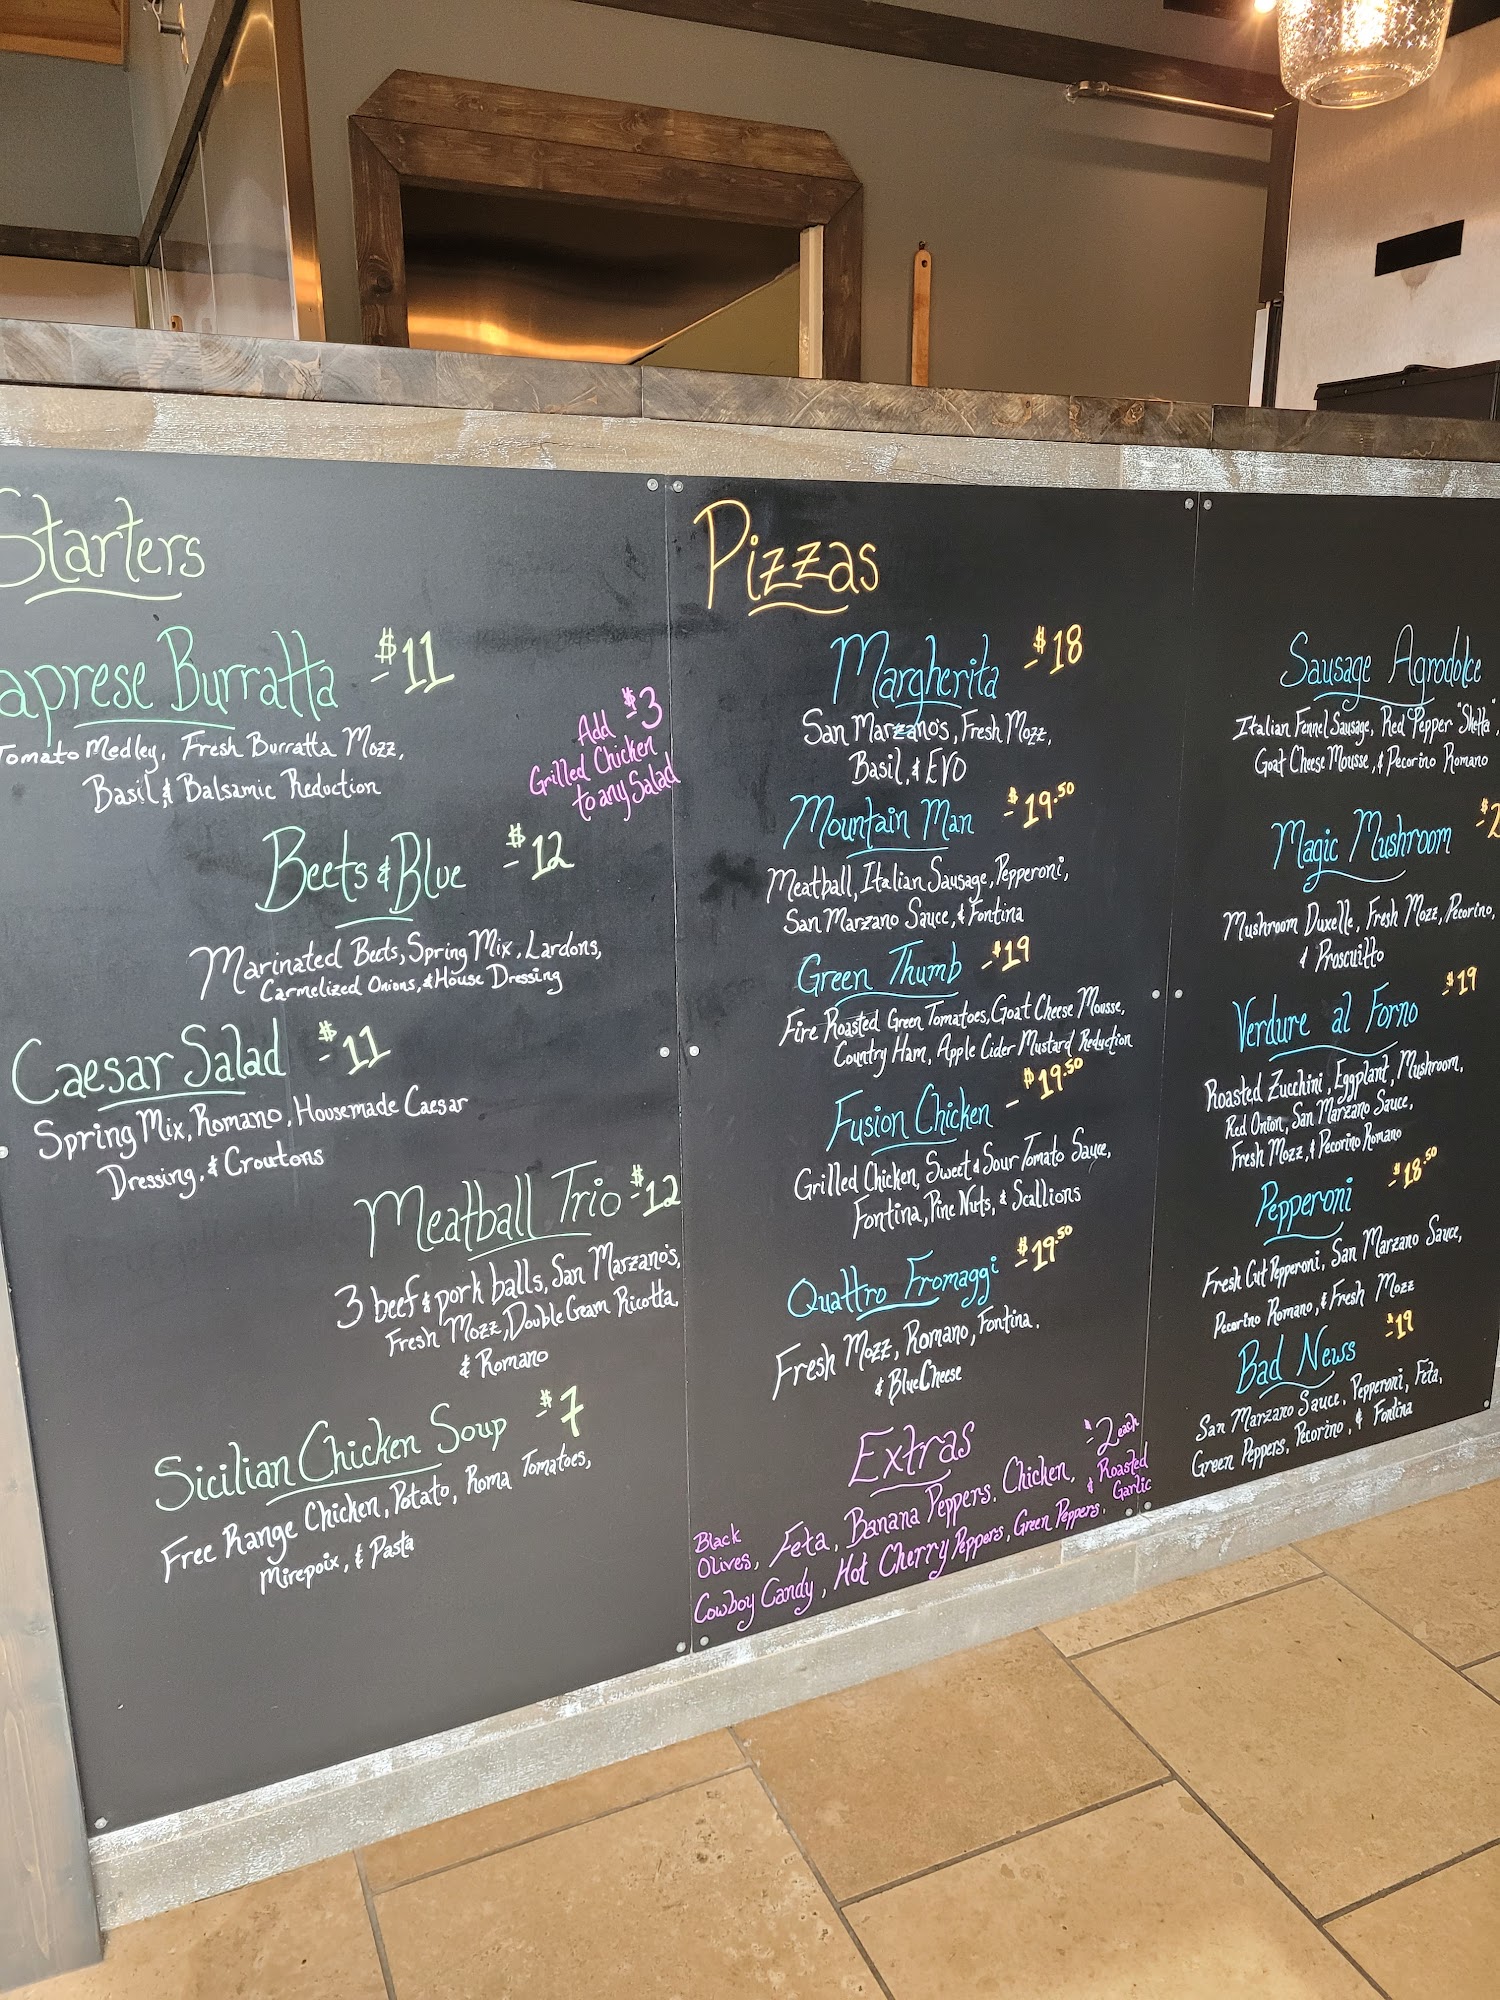 Starters
aprese Burratta $11
Tomato Medley, Fresh Burratta Mozz,
Basil, & Balsamic Reduction
Add $3
Grilled Chicken
to any Salad
Beets & Blue $12
Marinated Beets, Spring Mix, Lardons,
Carmelized Onions, & House Dressing
Caesar Salad $11
Spring Mix, Romano, Housemade Caesar
Dressing, & Croutons
Meatball Trio $12
3 beef & pork balls, San Marzano's,
Fresh Mozz, Double Cream Ricotta,
& Romano
Sicilian Chicken Soup $7
Free Range Chicken, Potato, Roma Tomatoes,
Mirepoix, & Pasta
Pizzas
Margherita $18
San Marzano's, Fresh Mozz,
Basil, & EVO
Mountain Man $19.50
Meatball, Italian Sausage, Pepperoni,
San Marzano Sauce, & Fontina
Green Thumb $19
Fire Roasted Green Tomatoes, Goat Cheese Mousse,
Country Ham, Apple Cider Mustard Reduction
Fusion Chicken $19.50
Grilled Chicken, Sweet & Sour Tomato Sauce,
Fontina, Pine Nuts, & Scallions
Quattro Fromaggi $19.50
Fresh Mozz, Romano, Fontina,
& Blue Cheese
Extras $2 each
Black Olives, Feta, Banana Peppers, Chicken, & Roasted Garlic
Cowboy Candy, Hot Cherry Peppers, Green Peppers,
Sausage Agrodolce
Italian Fennel Sausage, Red Pepper "Sketta",
Goat Cheese Mousse, & Pecorino Romano
Magic Mushroom $2
Mushroom Duxelle, Fresh Mozz, Pecorino,
& Proscuitto
Verdure al Forno $19
Roasted Zucchini, Eggplant, Mushroom,
Red Onion, San Marzano Sauce,
Fresh Mozz, & Pecorino Romano
Pepperoni $18.50
Fresh Cut Pepperoni, San Marzano Sauce,
Pecorino Romano, & Fresh Mozz
Bad News $19
San Marzano Sauce, Pepperoni, Feta,
Green Peppers, Pecorino, & Fontina